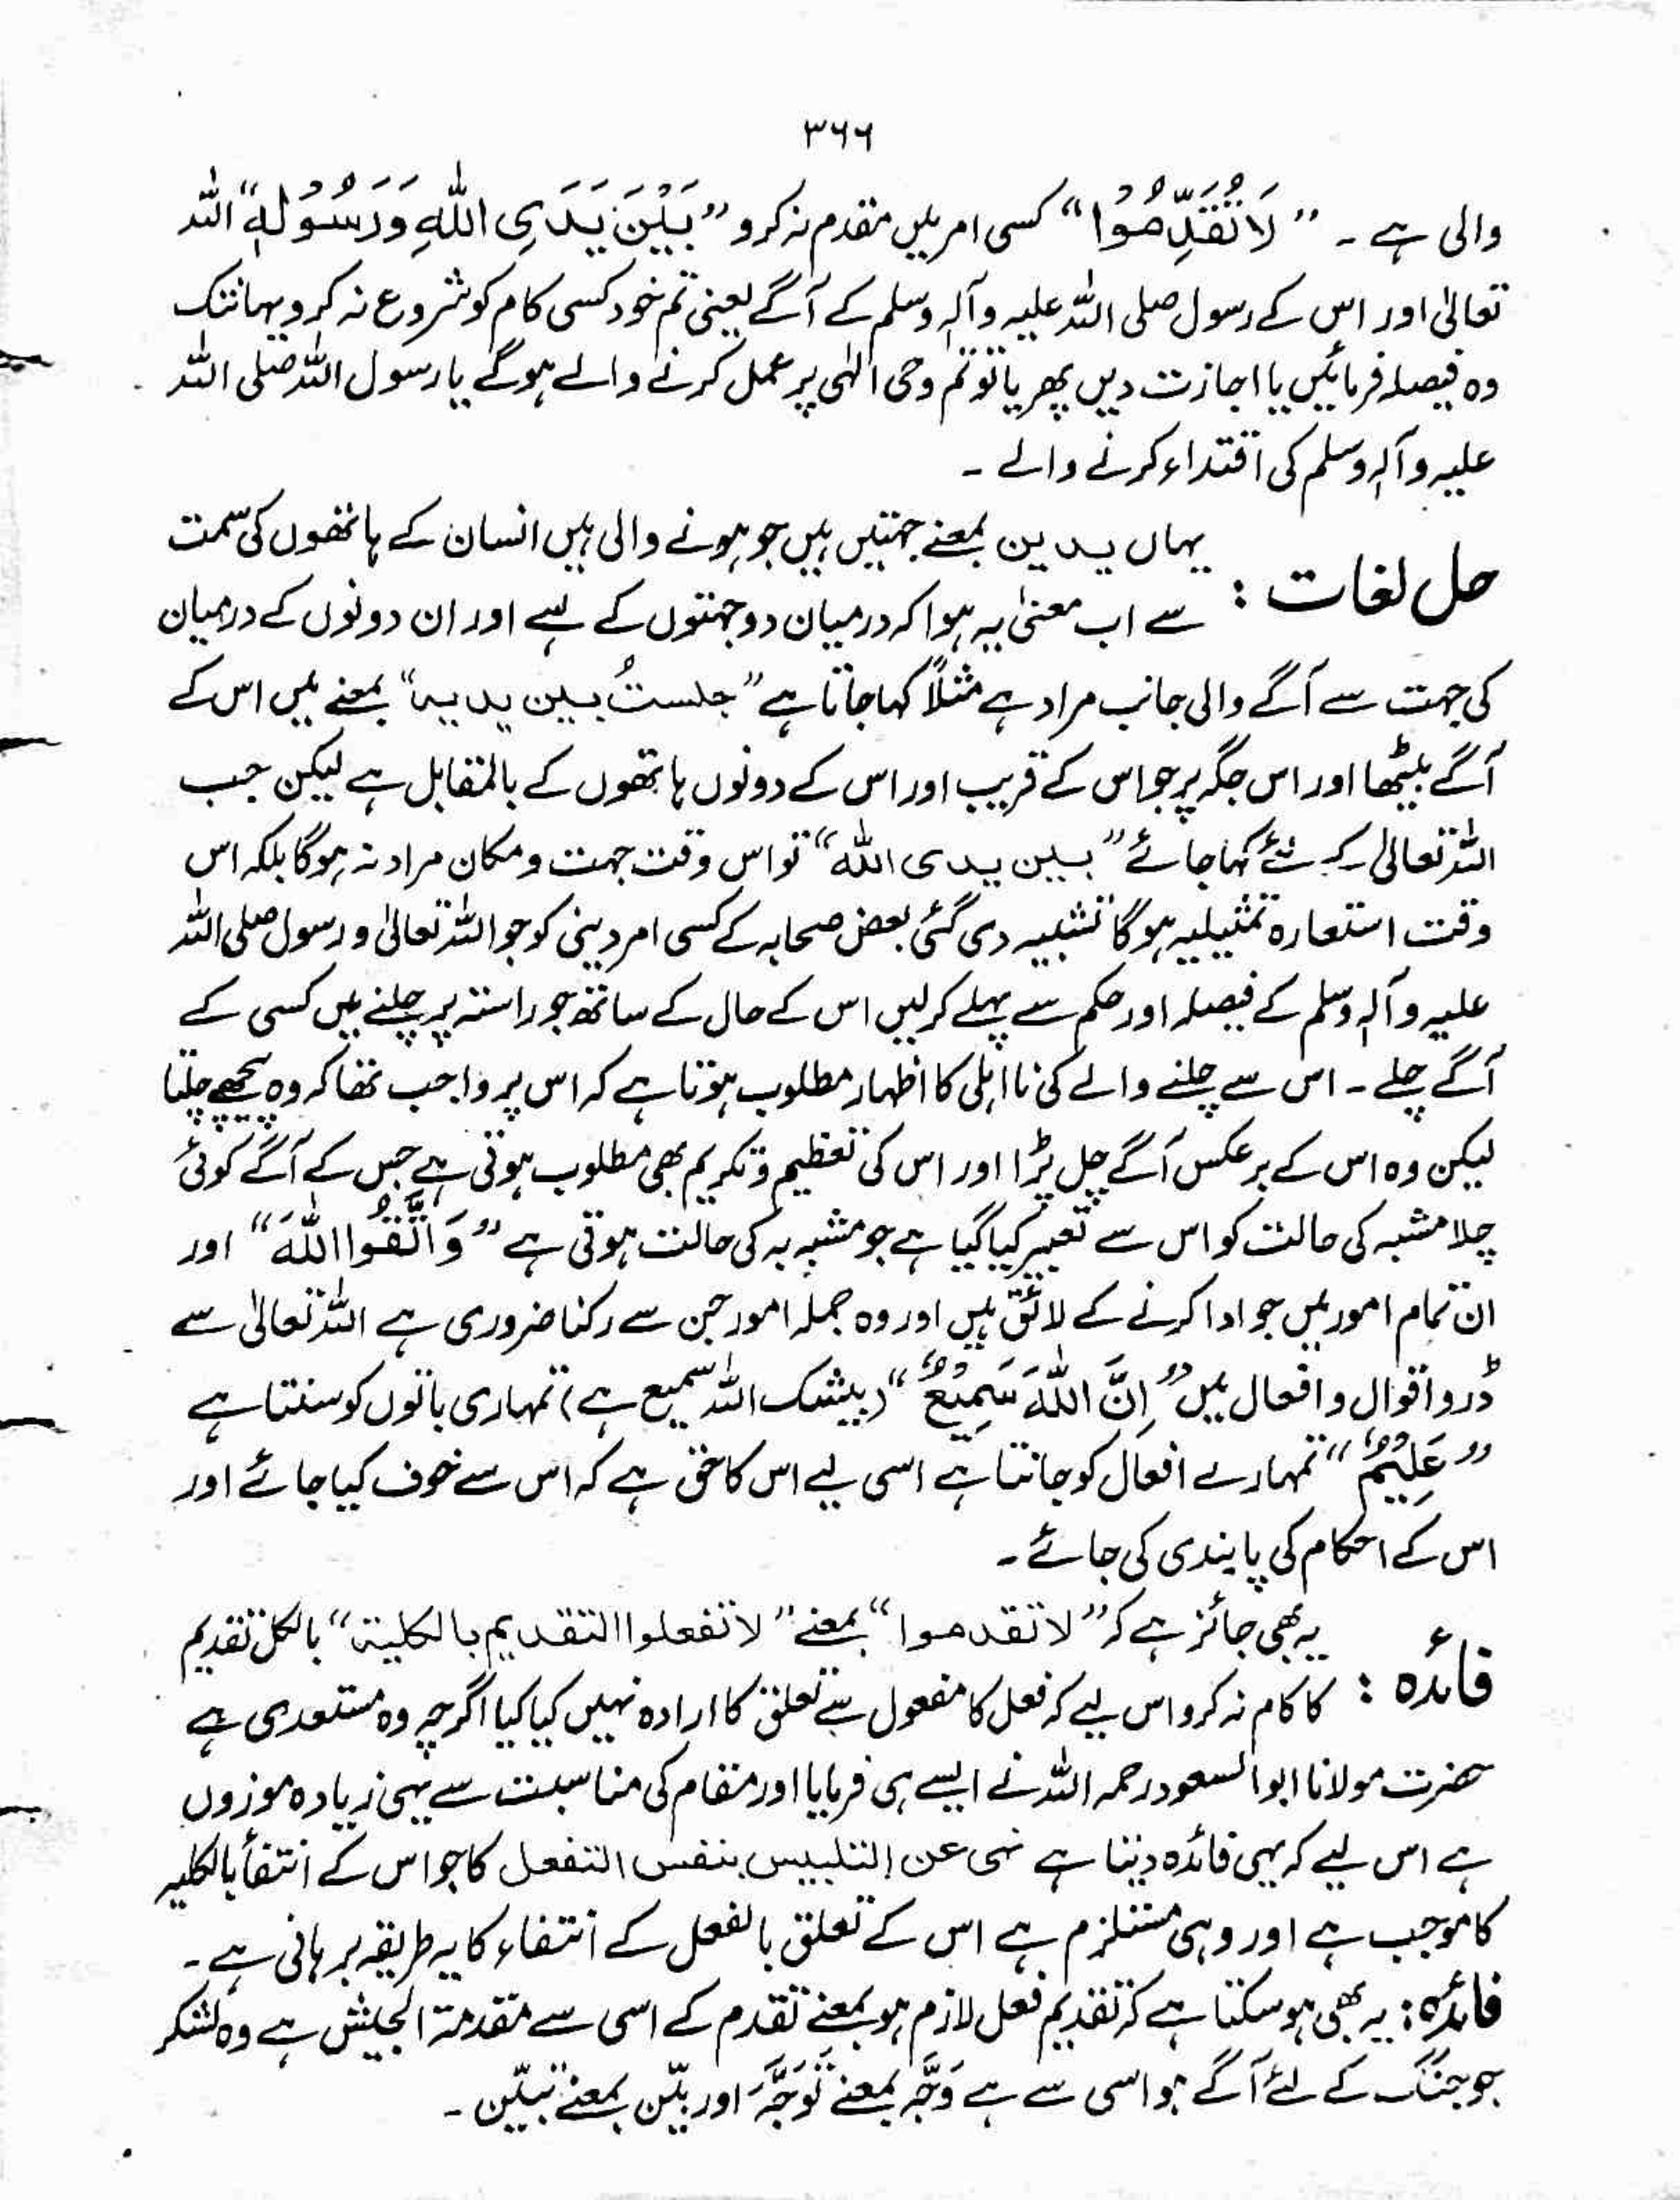 ۳۶۶
والی ہے ۔ ” لَا تُقَدِّمُوْا “ کسی امر میں مقدم نہ کرو ” بَیْنَ یَدَیِ اللّٰہِ وَرَسُوْلِہٖ “ اللہ
تعالیٰ اور اس کے رسول صلی اللہ علیہ وآلہ وسلم کے آگے یعنی تم خود کسی کام کو شروع نہ کرو یہانتک
وہ فیصلہ فرمائیں یا اجازت دیں پھر یا تو تم وحی الٰہی پر عمل کرنے والے ہوگے یا رسول اللہ صلی اللہ
علیہ وآلہ وسلم کی اقتداء کرنے والے ۔
حل لغات : یہاں یدین بمعنے جہتیں ہیں جو ہونے والی ہیں انسان کے ہاتھوں کی سمت
سے اب معنیٰ یہ ہوا کہ درمیان دو جہتوں کے لیے اور ان دونوں کے درمیان
کی جہت سے آگے والی جانب مراد ہے مثلاً کہا جاتا ہے ” جلستُ بین یدیہ “ بمعنے میں اس کے
آگے بیٹھا اور اس جگہ پر جو اس کے قریب اور اس کے دونوں ہاتھوں کے بالمقابل ہے لیکن جب
اللہ تعالیٰ کے لئے کہا جائے ” بین یدی اللہ “ تو اس وقت جہت و مکان مراد نہ ہوگا بلکہ اس
وقت استعارہ تمثیلیہ ہوگا تشبیہ دی گئی بعض صحابہ کے کسی امر دینی کو جو اللہ تعالیٰ و رسول صلی اللہ
علیہ وآلہ وسلم کے فیصلہ اور حکم سے پہلے کرلیں اس کے حال کے ساتھ جو راستہ پر چلنے میں کسی کے
آگے چلے ۔ اس سے چلنے والے کی نا اہلی کا اظہار مطلوب ہوتا ہے کہ اس پر واجب تھا کہ وہ پیچھے چلتا
لیکن وہ اس کے برعکس آگے چل پڑا اور اس کی تعظیم و تکریم بھی مطلوب ہوتی ہے جس کے آگے کوئی
چلا مشبہ کی حالت کو اس سے تعبیر کیا گیا ہے جو مشبہ بہ کی حالت ہوتی ہے ” وَاتَّقُوا اللّٰہَ “ اور
ان تمام امور میں جو ادا کرنے کے لائق ہیں اور وہ جملہ امور جن سے رکنا ضروری ہے اللہ تعالیٰ سے
ڈرو اقوال و افعال میں ” اِنَّ اللّٰہَ سَمِیْعٌ “ ( بیشک اللہ سمیع ہے ) تمہاری باتوں کو سنتا ہے
” عَلِیْمٌ “ تمہارے افعال کو جانتا ہے اسی لیے اس کا حق ہے کہ اس سے خوف کیا جائے اور
اس کے احکام کی پابندی کی جائے ۔
فائدہ : یہ بھی جائز ہے کہ ” لا تقدموا “ بمعنے ” لا تفعلوا التقدیم بالکلیۃ “ بالکل تقدیم
کا کام نہ کرو اس لیے کہ فعل کا مفعول سے تعلق کا ارادہ نہیں کیا گیا اگرچہ وہ متعدی ہے
حضرت مولانا ابوالسعود رحمہ اللہ نے ایسے ہی فرمایا اور مقام کی مناسبت سے یہی زیادہ موزوں
ہے اس لیے کہ یہی فائدہ دیتا ہے نہی عن التلبیس بنفس التفعل کا جو اس کے انتفأ بالکلیہ
کا موجب ہے اور وہی مستلزم ہے اس کے تعلق بالفعل کے انتفاء کا یہ طریقہ برہانی ہے ۔
فائدہ : یہ بھی ہو سکتا ہے کہ تقدیم فعل لازم ہو بمعنے تقدم کے اسی سے مقدمۃ الجیش ہے وہ لشکر
جو جنگ کے لئے آگے ہو اسی سے ہے وَجَّہ بمعنے تَوَجَّہَ اور بیّن بمعنے تبیّن ۔